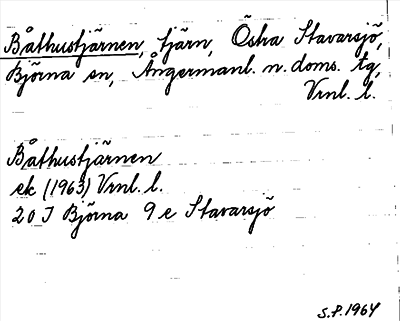 Båthustjärnen, tjärn, Östra Stavarsjö,
Björna sn, Ångermanl. n. doms. tg,
Vrnl. l.
Båthustjärnen
ek (1963) Vrnl. l.
20 I Björna 9 e Stavarsjö
S.P. 1964